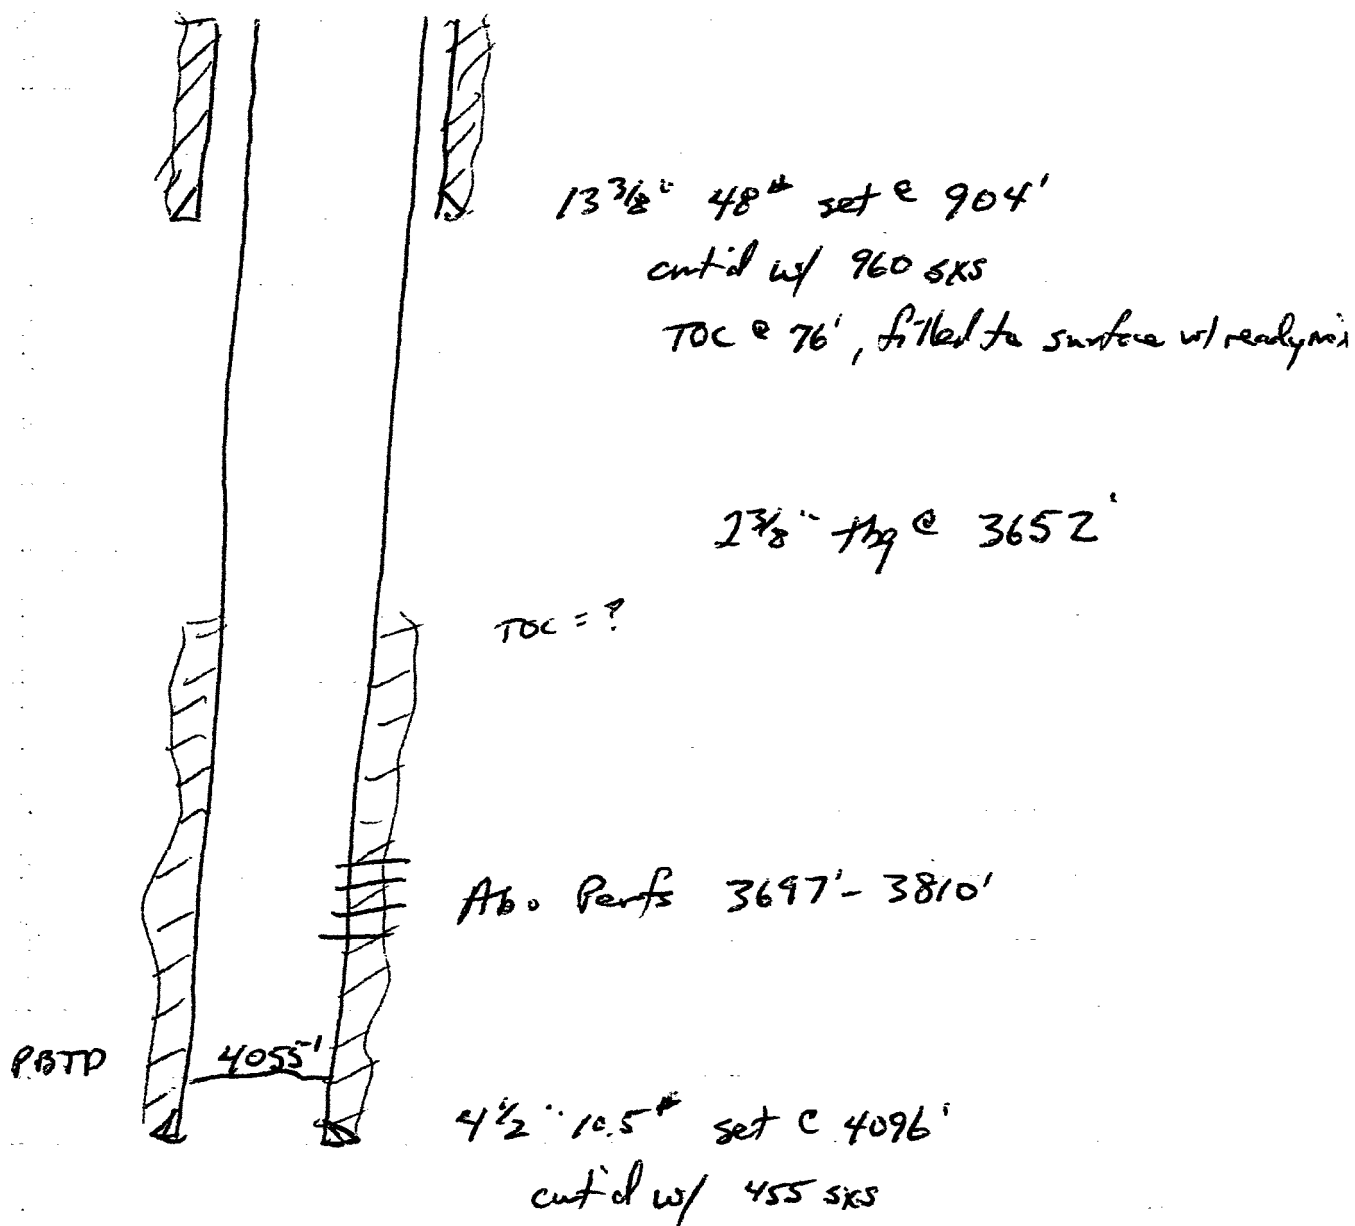 13 3/8" 48# set @ 904'
cmt'd w/ 960 sxs
TOC @ 76', filled to surface w/ readymix
2 3/8" tbg @ 3652'
TOC = ?
Abo Perfs 3697'- 3810'
PBTD 4055'
4 1/2" 10.5# set @ 4096'
cmt'd w/ 455 sxs